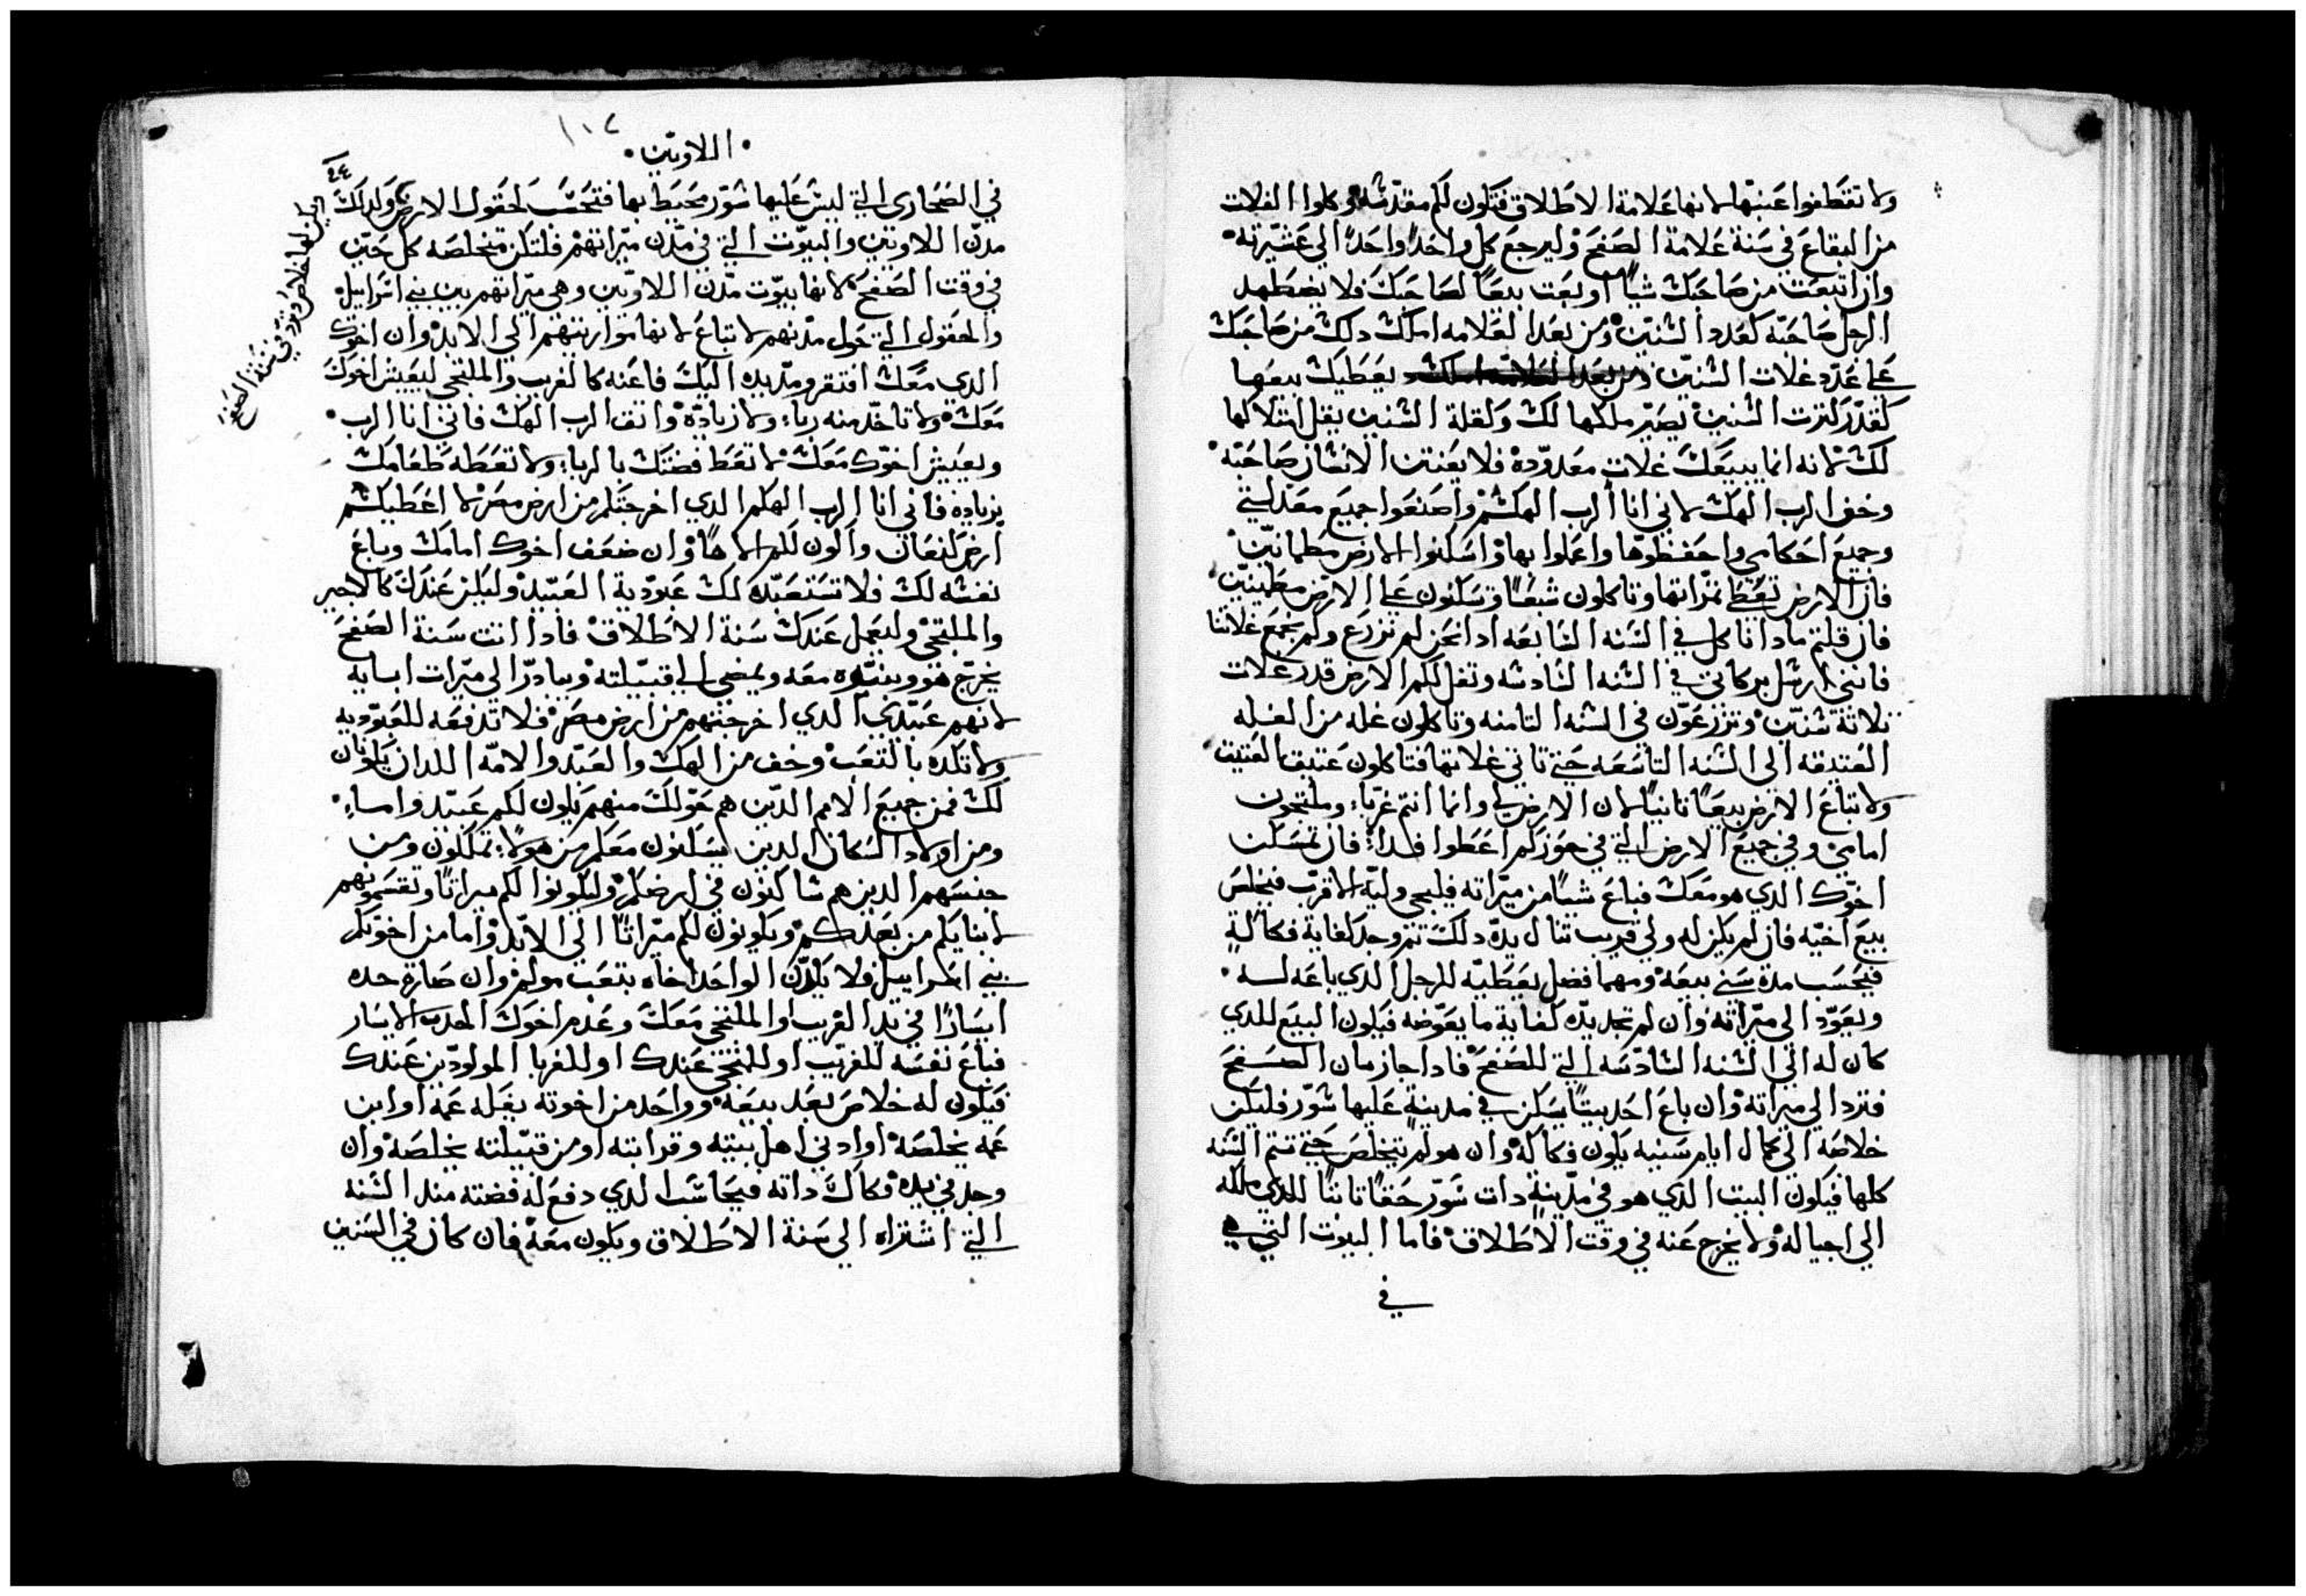 ولا تقطفوا عنبها لانها علامة الاطلاق فتكون لكم مقدسه وكلوا الغلات
من البقاع في سنة علامة الصفح وليرجع كل واحدا واحدا الي عشيرته
وان ابتعت من صاحبك شيا او بعت بيعا لصاحبك فلا يضطهد
الرجل صاحبه كعدد السنين ومن بعد العلامه املك دلك من صاحبك
علي عدد غلات السنين يعطيك بيعها
كقدر كثرت السنين يصير ملكها لك ولقلة السنين يقل
لك لانه انما يبيعك غلات معدوده فلا يعنتن الانسان صاحبه
وخف الرب الهك لاني انا الرب الهكم واصنعوا جميع معدلتي
وجميع احكامي واحفظوها واعملوا بها واسكنوا الارض مطمانين
فان الارض تعطي تمراتها وتاكلون شبعا وتسكنون علي الارض مطمينين
فان قلتم مادا ناكل في السنه السابعه ادا نحن لم نزرع ولم نجمع غلاتنا
فانني ارسل بركاتي في السنه السادسه وتغل لكم الارض قدر غلات
تلاتة سنين وتزرعون في السنه التامنه وتاكلون غله من الغله
العتيقه الي السنه التاسعه حتي تاتي غلاتها فتاكلون عتيق العتيق
ولا تباع الارض بيعا تانيا لان الارض لي وانما انتم غربا وملتجون
امامي وفي جميع الارض التي في حوزكم اعطوا فدا فان تمسكن
اخوك الدي هو معك فباع شيا من ميراته فليجي وليه الاقرب فيخلص
بيع اخيه فان لم يكن له ولي قريب تنال يده دلك تم وجد كفاية فكاكه
فيحسب مدة سني بيعه ومهما فضل يعطيه للرجل الدي باعه له
ويعود الي ميراته وان لم تجد يده كفاية ما يعوضه فيكون البيع للدي
كان له الي السنه السادسه التي للصفح فادا جاز مان الصفح
فترد الي ميراته وان باع احد بيتا يسكن في مدينة عليها سور فليكن
خلاصه الي كمال ايام سنيه يكون فكاكه وان هو لم يتخلص حتي تتم السنه
كلها فيكون البيت الدي هو في مدينة دات سور حقا تابتا للدي ملكه
الي اجياله ولا يخرج عنه في وقت الاطلاق فاما البيوت التي هي
في
اللاويين
في الصحاري التي ليس عليها سور محيط بها فتحسب كحقول الارض ولدلك
وليكن لها خلاص وترد في سنة الصفح
مدن اللاويين والبيوت التي في مدن ميراتهم فلتكن متخلصه كل حين
في وقت الصفح لانها بيوت مدن اللاويين وهي ميراتهم بين بني اسراييل
والحقول التي حول مدنهم لا تباع لانها مواريتهم الي الابد وان اخوك
الدي معك افتقر ومد يده اليك فاعنه كالغريب والملتجي ليعيش اخوك
معك ولا تاخد منه ربا ولا زياده واتق الرب الهك فاني انا الرب
ويعيش اخوك معك لا تعط فضتك بالربا ولا تعطه طعامك
بزياده فاني انا الرب الهكم الدي اخرجتكم من ارض مصر لاعطيكم
ارض كنعان واكون لكم الاها وان ضعف اخوك امامك وباع
نفسه لك فلا تستعبده لك عبودية العبيد وليكن عندك كالاجير
والملتجي وليعمل عندك سنة الاطلاق فادا اتت سنة الصفح
يخرج هو وبنوه معه ويمضي الي قبيلته ويبادر الي ميرات ابايه
لانهم عبيدي الدي اخرجتهم من ارض مصر فلا تدفعه للعبوديه
ولا تكده بالتعب وخف من الهك والعبد والامه اللدان يكونان
لك فمن جميع الامم الدين هم حولك منهم يكون لكم عبيد واماء
ومن اولاد السكان الدين يسكنون معكم من هولا تملكون ومن
جنسهم الدين هم ساكنون في ارضكم وليكونوا لكم ميراتا وتقسموهم
لابنايكم من بعدكم ويكونون لكم ميراتا الي الابد واما من اخوتكم
بني اسراييل فلا يكدن الواحد اخاه بتعب مولم وان صارة جده
ايسارا في يد الغريب او الملتجي معك وعدم اخوك الجده الايسار
فباع نفسه للغريب او للملتجي عندك او للغربا المولودين عندك
فيكون له خلاص بعد بيعه وواحد من اخوته يفكه عمه او ابن
عمه يخلصه او ادني اهل بيته وقرابته او من قبيلته يخلصه وان
وجد في يده فكاك داته فيحاسب الدي دفع له فضته مند السنه
التي اشتراه الي سنة الاطلاق ويكون معه فان كان في السنين